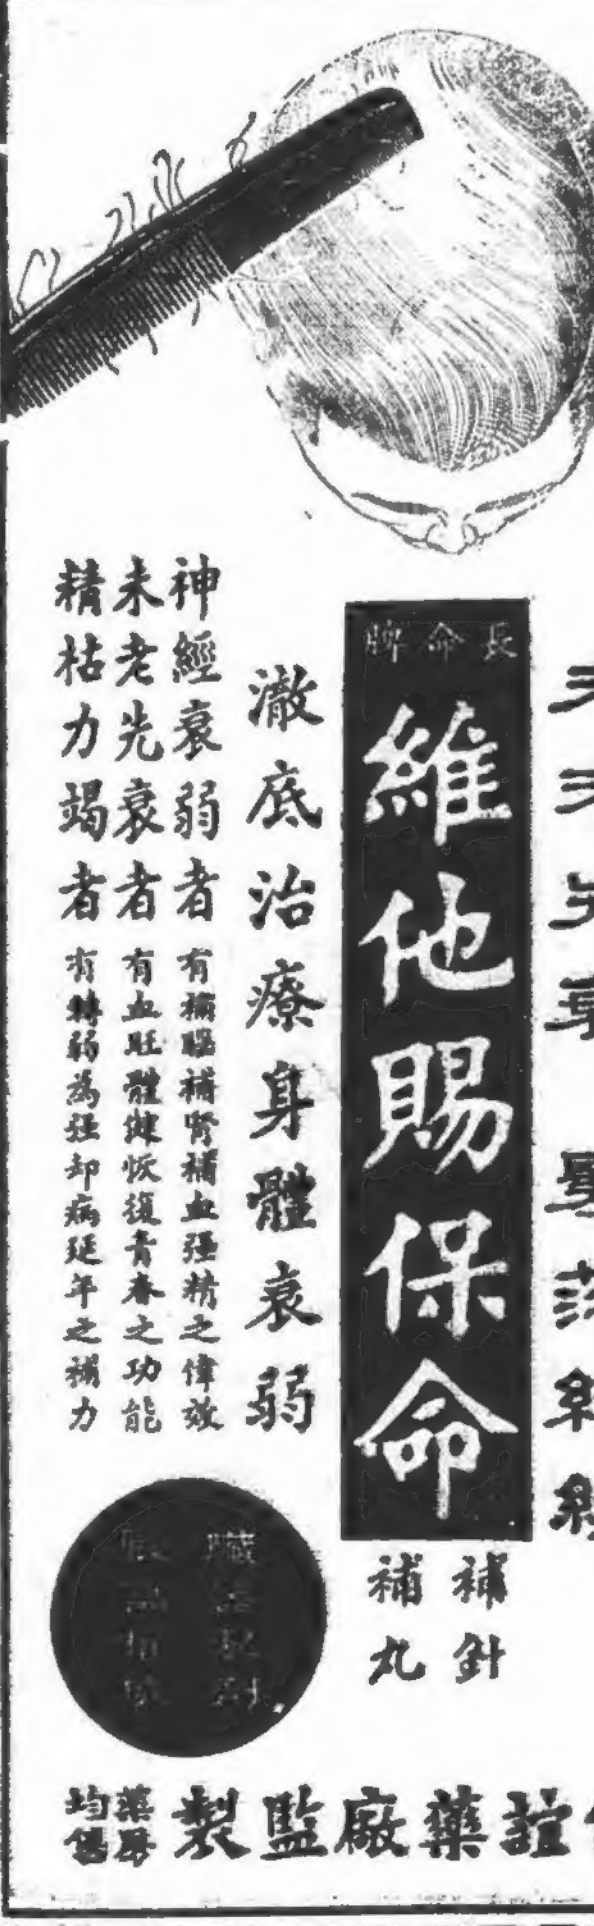 長命牌
維他賜保命
補針
補丸
澈底治療身體衰弱
神經衰弱者 有補腦補腎補血强精之偉效
未老先衰者 有血旺體健恢復青春之功能
精枯力竭者 有轉弱為强却病延年之補力
誼藥廠監製
藥房
均售